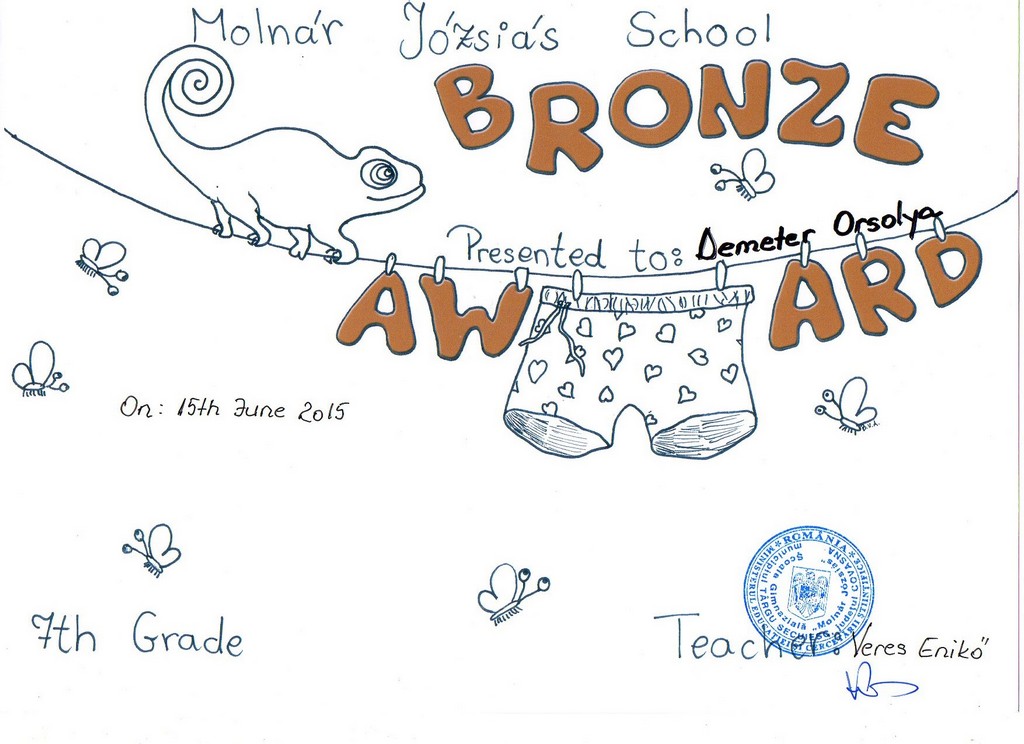 Molnár Józsiás School
BRONZE
Presented to: Demeter Orsolya
AWARD
On: 15th June 2015
7th Grade
Teacher: Veres Enikő
ROMÂNIA
MINISTERUL EDUCAȚIEI ȘI CERCETĂRII ȘTIINȚIFICE
Școala Gimnazială „Molnár Józsiás”
municipiul TÂRGU SECUIESC
județul COVASNA